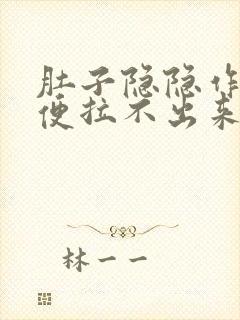 肚子隐隐作
便拉不出来
林一一